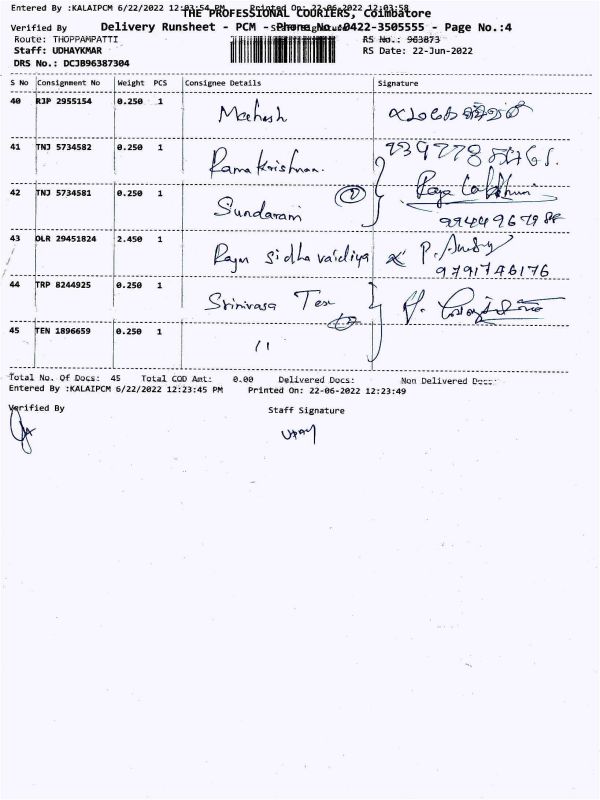 Entered By :KALAIPCM 6/22/2022 12:03:54 PM Printed On: 22-06-2022 12:03:58
THE PROFESSIONAL COURIERS, Coimbatore
Verified By Delivery Runsheet - PCM - Phone No.:0422-3505555 - Page No.:4
Route: THOPPAMPATTI RS No.: 963873
Staff: UDHAYKMAR RS Date: 22-Jun-2022
DRS No.: DCJB96387304
S No Consignment No Weight PCS Consignee Details Signature
40 RJP 2955154 0.250 1 Mahesh
41 TNJ 5734582 0.250 1 Rama krishnan.
42 TNJ 5734581 0.250 1 Sundaram ②
43 DLR 29451824 2.450 1 Rajan sidha vaidiya
9791746176
44 TRP 8244925 0.250 1 Srinivasa Tex
45 TEN 1896659 0.250 1 11
Total No. Of Docs: 45 Total COD Amt: 0.00 Delivered Docs: Non Delivered Docs:
Entered By :KALAIPCM 6/22/2022 12:23:45 PM Printed On: 22-06-2022 12:23:49
Verified By Staff Signature